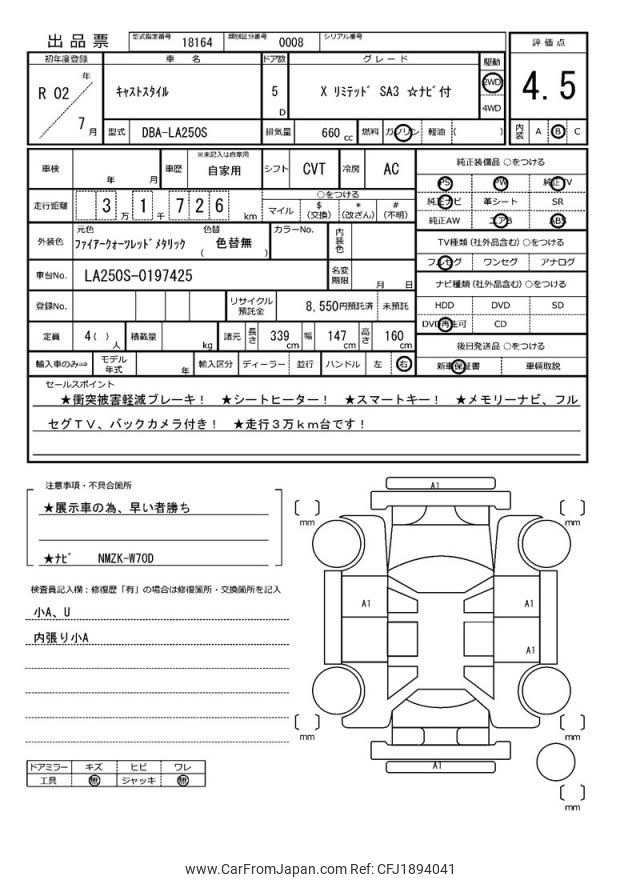 出品票 型式指定番号 18164 類別区分番号 0008 シリアル番号
評価点
4.5
内装 A B C
初年度登録 車名 ドア数 グレード 駆動
R 02 年 7 月
ｷｬｽﾄｽﾀｲﾙ 5 D X ﾘﾐﾃｯﾄﾞ SA3 ☆ﾅﾋﾞ付 2WD
4WD
型式 DBA-LA250S 排気量 660 cc 燃料 ガソリン 軽油 ( )
車検 年 月 車歴 ※未記入は自家用 自家用 シフト CVT 冷房 AC
走行距離 3 万 1 千 7 2 6 km
○をつける
マイル $ (交換) * (改ざん) # (不明)
外装色 元色 ﾌｧｲｱｰｸｫｰﾂﾚｯﾄﾞﾒﾀﾘｯｸ 色替 ( 色替無 ) カラーNo. 内装色
車台No. LA250S-0197425 名変期限 月 日
登録No. リサイクル預託金 8,550円預託済 未預託
定員 4( ) 人 積載量 kg 諸元 長さ 339 cm 幅 147 cm 高さ 160 cm
輸入車のみ⇒ モデル年式 年 輸入区分 ディーラー 並行 ハンドル 左 右
純正装備品 ○をつける
PS PW 純正TV
純正ナビ 革シート SR
純正AW エアB ABS
TV種類(社外品含む)○をつける
フルセグ ワンセグ アナログ
ナビ種類(社外品含む)○をつける
HDD DVD SD
DVD再生可 CD
後日発送品 ○をつける
新車保証書 車輌取説
セールスポイント
★衝突被害軽減ブレーキ！ ★シートヒーター！ ★スマートキー！ ★メモリーナビ、フル
セグＴＶ、バックカメラ付き！ ★走行３万ｋｍ台です！
注意事項・不具合箇所
★展示車の為、早い者勝ち
★ﾅﾋﾞ NMZK-W70D
検査員記入欄：修復歴「有」の場合は修復箇所・交換箇所を記入
小A、U
内張り小A
ドアミラー キズ ヒビ ワレ
工具 無 ジャッキ 無
A1
mm
mm
A1
A1
A1
mm
mm
A1
mm
www.CarFromJapan.com Ref: CFJ1894041